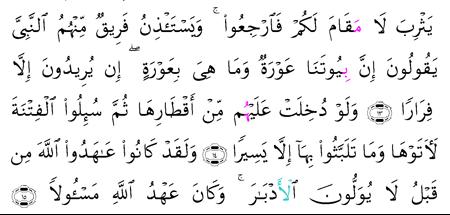 يَثْرِبَ لَا مَقَامَ لَكُمْ فَٱرْجِعُوا۟ ۚ وَيَسْتَـْٔذِنُ فَرِيقٌ مِّنْهُمُ ٱلنَّبِىَّ
يَقُولُونَ إِنَّ بِيُوتَنَا عَوْرَةٌ وَمَا هِىَ بِعَوْرَةٍ ۖ إِن يُرِيدُونَ إِلَّا
فِرَارًا ١٣ وَلَوْ دُخِلَتْ عَلَيْهُم مِّنْ أَقْطَارِهَا ثُمَّ سُئِلُوا۟ ٱلْفِتْنَةَ
لَأَتَوْهَا وَمَا تَلَبَّثُوا۟ بِهَآ إِلَّا يَسِيرًا ١٤ وَلَقَدْ كَانُوا۟ عَـٰهَدُوا۟ ٱللَّهَ مِن
قَبْلُ لَا يُوَلُّونَ ٱلْأَدْبَـٰرَ ۚ وَكَانَ عَهْدُ ٱللَّهِ مَسْـُٔولًا ١٥